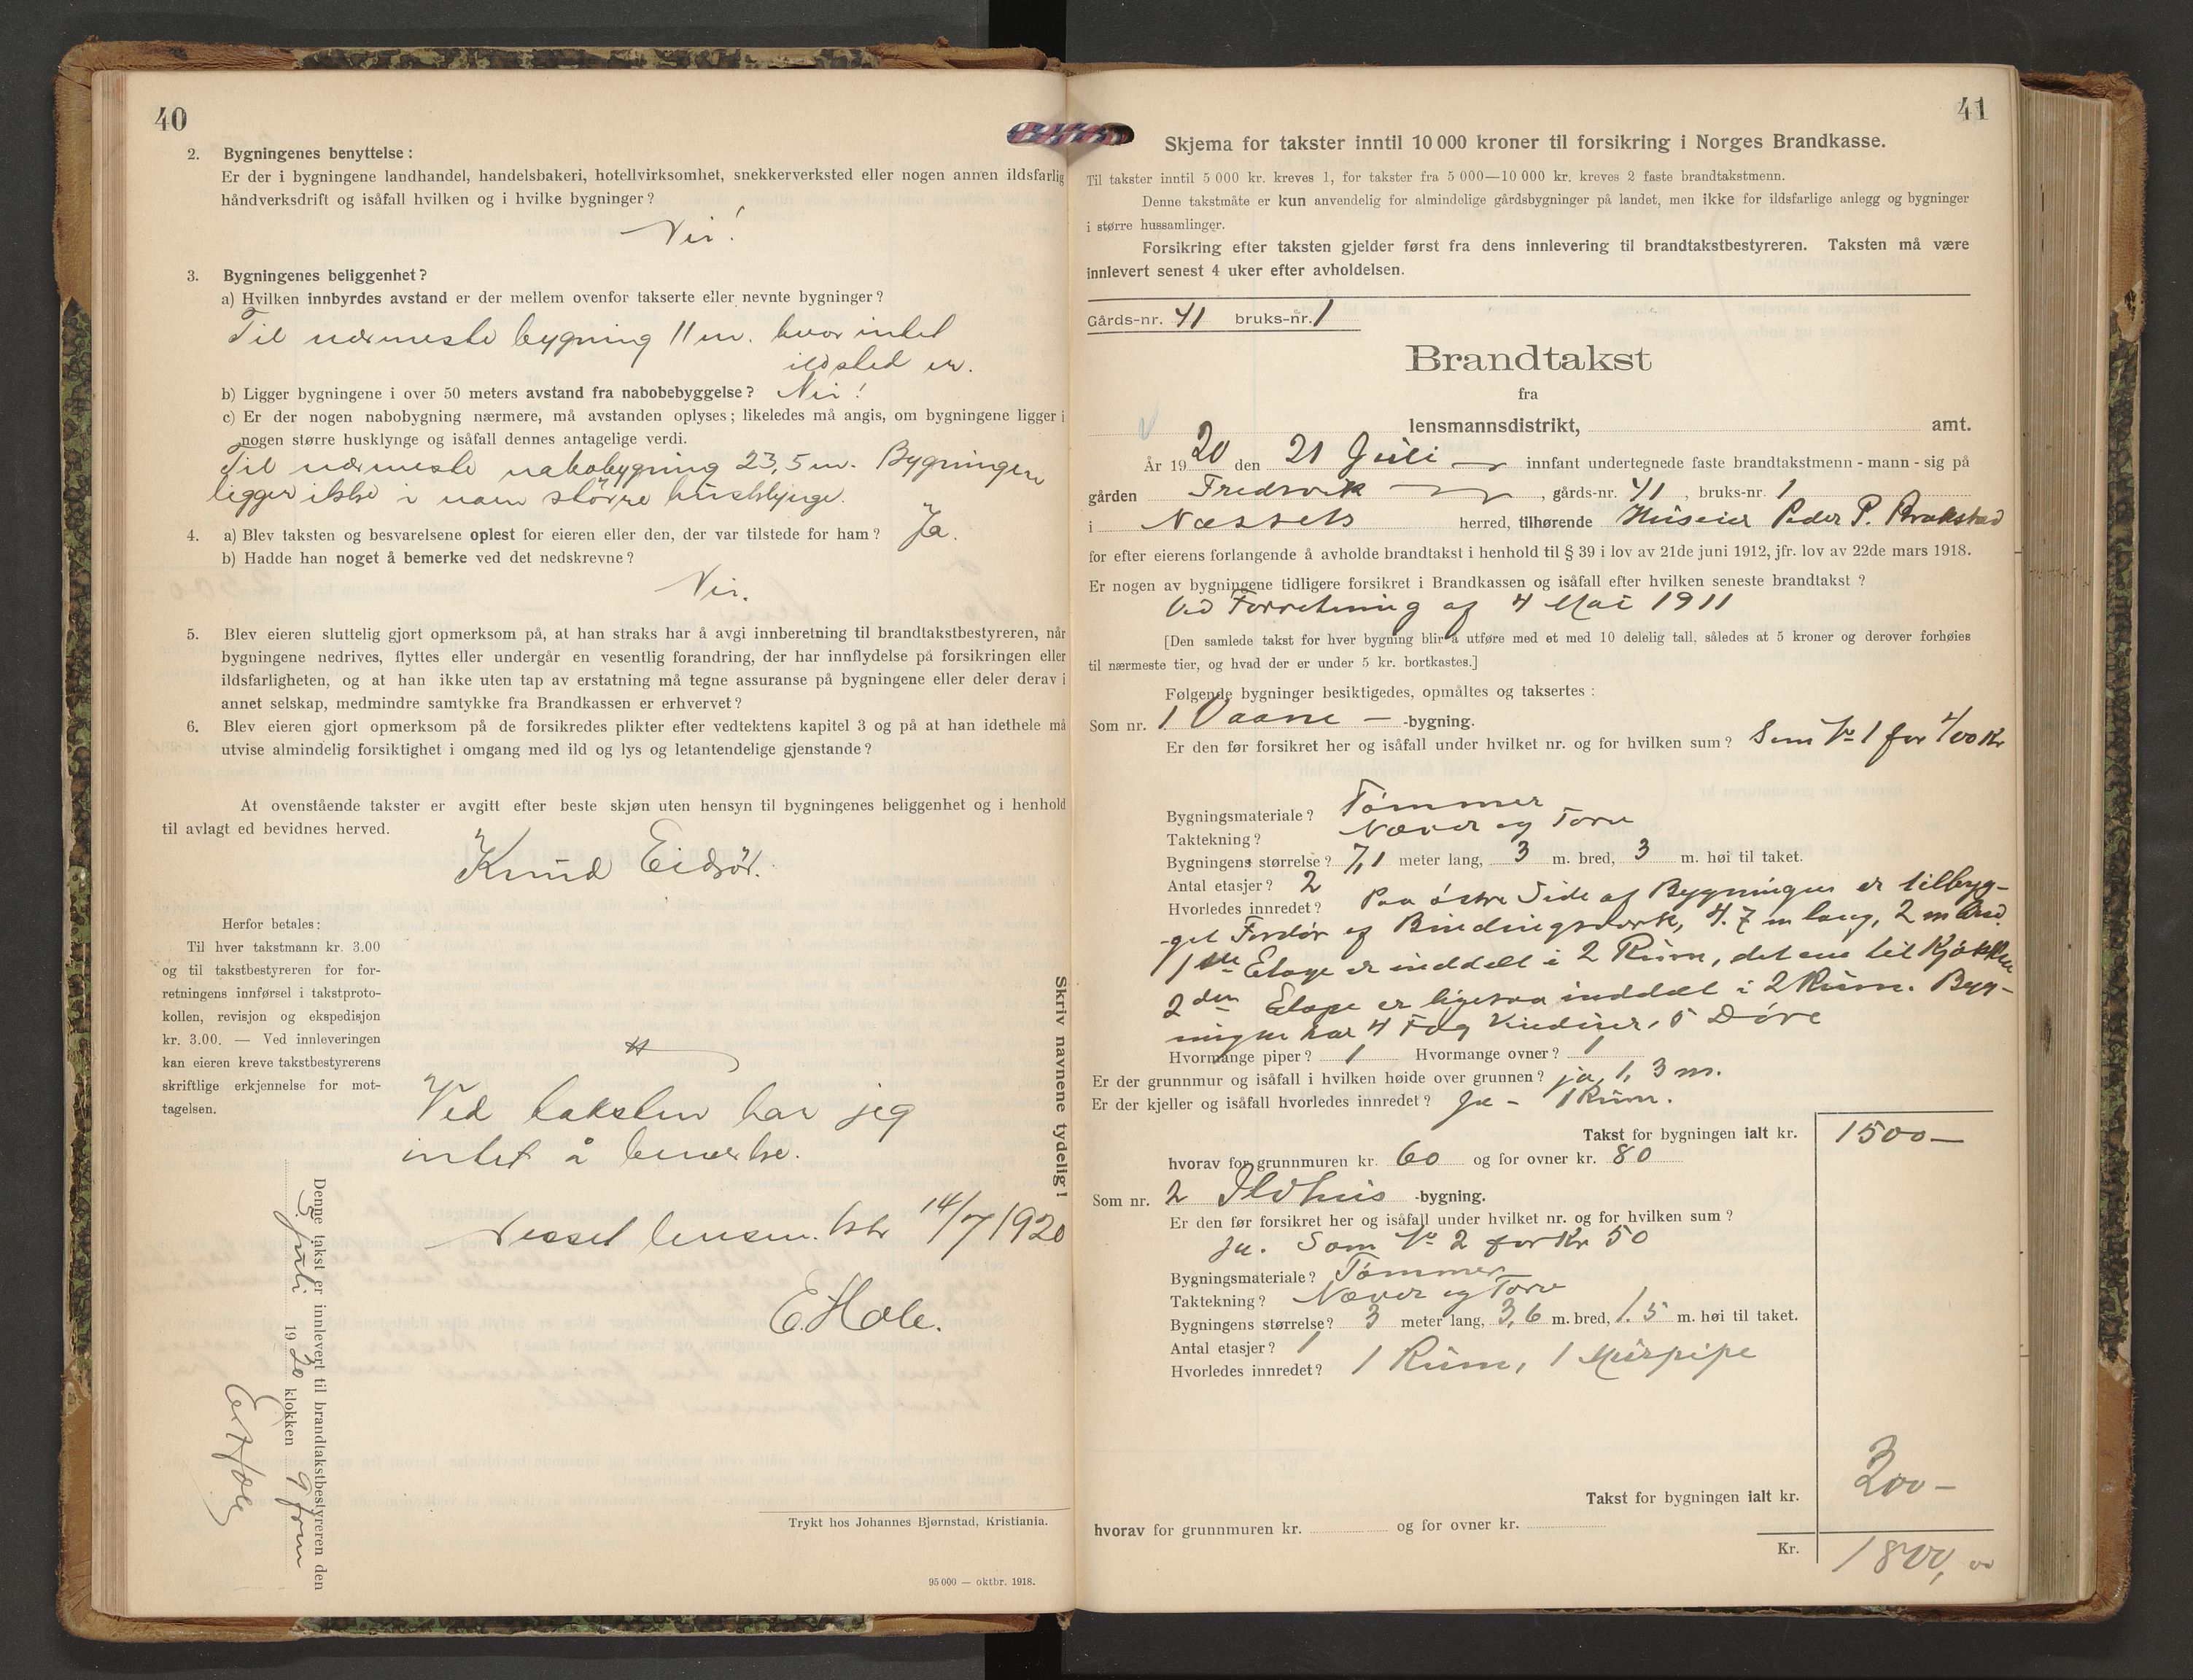 40
2. Bygningenes benyttelse:
Er der i bygningene landhandel, handelsbakeri, hotellvirksomhet, snekkerverksted eller nogen annen ildsfarlig
håndverksdrift og isåfall hvilken og i hvilke bygninger?
Nei!
3. Bygningenes beliggenhet?
a) Hvilken innbyrdes avstand er der mellem ovenfor takserte eller nevnte bygninger?
Til nærmeste bygning 11 m. hvor intet
ildsted er.
b) Ligger bygningene i over 50 meters avstand fra nabobebyggelse? Nei!
c) Er der nogen nabobygning nærmere, må avstanden oplyses; likeledes må angis, om bygningene ligger i
nogen større husklynge og isåfall dennes antagelige verdi.
Til nærmeste nabobygning 23,5 m. Bygningen
ligger ikke i noen större husklynge.
4. a) Blev taksten og besvarelsene oplest for eieren eller den, der var tilstede for ham? Ja.
b) Hadde han noget å bemerke ved det nedskrevne?
Nei.
5. Blev eieren sluttelig gjort opmerksom på, at han straks har å avgi innberetning til brandtakstbestyreren, når
bygningene nedrives, flyttes eller undergår en vesentlig forandring, der har innflydelse på forsikringen eller
ildsfarligheten, og at han ikke uten tap av erstatning må tegne assuranse på bygningene eller deler derav i
annet selskap, medmindre samtykke fra Brandkassen er erhvervet?
6. Blev eieren gjort opmerksom på de forsikredes plikter efter vedtektens kapitel 3 og på at han idethele må
utvise almindelig forsiktighet i omgang med ild og lys og letantendelige gjenstande?
At ovenstående takster er avgitt efter beste skjøn uten hensyn til bygningenes beliggenhet og i henhold
til avlagt ed bevidnes herved.
Knud Eidsör.
Herfor betales:
Til hver takstmann kr. 3.00
og til takstbestyreren for for-
retningens innførsel i takstproto-
kollen, revisjon og ekspedisjon
kr. 3.00. — Ved innleveringen
kan eieren kreve takstbestyrerens
skriftlige erkjennelse for mot-
tagelsen.
Ved taksten har jeg
intet å bemerke.
Nesset lensm. ktr 14/7 1920
E. Hole.
Skriv navnene tydelig!
Denne takst er innlevert til brandtakstbestyreren den
5 juli 1920 klokken 9 form
E. Hole
Trykt hos Johannes Bjørnstad, Kristiania.
95 000 — oktbr. 1918.
41
Skjema for takster inntil 10 000 kroner til forsikring i Norges Brandkasse.
Til takster inntil 5 000 kr. kreves 1, for takster fra 5 000—10 000 kr. kreves 2 faste brandtakstmenn.
Denne takstmåte er kun anvendelig for almindelige gårdsbygninger på landet, men ikke for ildsfarlige anlegg og bygninger
i større hussamlinger.
Forsikring efter taksten gjelder først fra dens innlevering til brandtakstbestyreren. Taksten må være
innlevert senest 4 uker efter avholdelsen.
Gårds-nr. 41 bruks-nr. 1
Brandtakst
fra
lensmannsdistrikt, amt.
År 1920 den 21 Juli innfant undertegnede faste brandtakstmenn - mann - sig på
gården Fredsvik, gårds-nr. 41, bruks-nr. 1
i Næssets herred, tilhørende Huseier Peder P. Brakstad
for efter eierens forlangende å avholde brandtakst i henhold til § 39 i lov av 21de juni 1912, jfr. lov av 22de mars 1918.
Er nogen av bygningene tidligere forsikret i Brandkassen og isåfall efter hvilken seneste brandtakst?
Ved Forretning af 4 Mai 1911
[Den samlede takst for hver bygning blir å utføre med et med 10 delelig tall, således at 5 kroner og derover forhøies
til nærmeste tier, og hvad der er under 5 kr. bortkastes.]
Følgende bygninger besiktigedes, opmåltes og taksertes:
Som nr. 1 Vaane — -bygning.
Er den før forsikret her og isåfall under hvilket nr. og for hvilken sum? Som No 1 for 400 Kr
Bygningsmateriale? Tömmer
Taktekning? Næver og Torv
Bygningens størrelse? 7,1 meter lang, 3 m. bred, 3 m. høi til taket.
Antal etasjer? 2
Hvorledes innredet? Paa östre Side af Bygningen er tilbyg-
get Fordör af Bindingsverk, 4.7 m lang, 2 m bred.
1ste Etage er inddelt i 2 Rum, det ene til Kjökken
2den Etage er ligesaa inddelt i 2 Rum. Byg-
ningen har 4 Fag Vinduer, 5 Döre
Hvormange piper? 1 Hvormange ovner? 1
Er der grunnmur og isåfall i hvilken høide over grunnen? ja, 1,3 m.
Er der kjeller og isåfall hvorledes innredet? Ja - 1 Rum.
Takst for bygningen ialt kr. 1500—
hvorav for grunnmuren kr. 60 og for ovner kr. 80
Som nr. 2 Ildhus -bygning.
Er den før forsikret her og isåfall under hvilket nr. og for hvilken sum?
Ja. Som No 2 for Kr 50
Bygningsmateriale? Tömmer
Taktekning? Næver og Torv
Bygningens størrelse? 3 meter lang, 3,6 m. bred, 1.5 m. høi til taket.
Antal etasjer? 1
Hvorledes innredet? 1 Rum, 1 Murpipe
Takst for bygningen ialt kr. 300—
hvorav for grunnmuren kr. og for ovner kr.
Kr. 1800,00